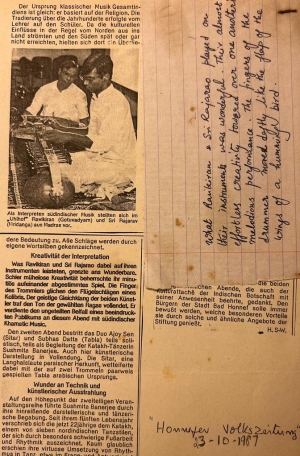 Der Ursprung klassischer Musik Gesamtin-
diens ist gleich; er basiert auf der Religion. Die
Tradierung über die Jahrhunderte erfolgte vom
Lehrer auf den Schüler. Da die kulturellen
Einflüsse in der Regel vom Norden aus ins
Land strömten und den Süden spät oder gar
nicht erreichten, hielten sich dort die
Als Interpreten südindischer Musik stellten sich im
Ravikiran (Gotuvadyam) und Sri Rajarav
aus Madras vor.
dere Bedeutung zu. Alle Schläge werden durch
eigene Wortsilben gekennzeichnet.
Kreativität der Interpretation
Was Ravikiran und Sri Rajarao dabei auf ihren
Instrumenten leisteten, grenzte ans Wunderbare.
Schier mühelose Kreativität beherrschte ihr minu-
tiöse aufeinander abgestimmtes Spiel. Die Finger
des Trommlers glichen den Flügelschlägen eines
Kolibris. Der geistige Gleichklang der beiden Künst-
ler traf den Ton der gewählten Ragas vollendet. Er
wurde mit dem ungeteilten Beifall eines beeindruck-
ten Publikums an diesem Abend mit südindischer
Musik.
Den zweiten Abend bestritt das Duo Ajoy Sen
(Sitar) und Subhas Datta (Tabla) teils soli-
stisch, teils als Begleitung der Katakh-Tänzerin
Sushmita Banerjee. Auch hier künstlerische
Darstellung in Vollendung. Die Sitar, eine
Langhalslaute persischer Herkunft, wetteiferte
dabei mit der auf zwei Trommeln paarweis
gespielten Tabla arabischen Ursprungs.
Wunder an Technik und
künstlerischer Ausstrahlung
Auf den Höhepunkt der zweiteiligen Veran-
staltungsreihe führte Sushmita Banerjee durch
ihre hinreißende darstellerische und tänze-
rische Begabung. Seit ihrem fünften Lebensjahr
verschrieb sich die jetzt 22jährige dem Katakh,
einem von sieben nordindischen Tanzstilen,
der sich durch besonders schwierige Fußarbeit
und Rhythmik auszeichnet. Kaum glaublich
erschien ihre virtuose Umsetzung von Rhyth-
What Ravikiran & Sri Rajarao played on
their instruments was wonderful. Their almost
effortless creativity towered over one another's
melodious performance. The fingers of the
drummer moved deftly like the flap of the
wings of a humming bird.
die beiden
Abende, die auch der
Kulturattaché der indischen Botschaft mit
seiner Anwesenheit beehrte, gedankt. Den
Bürgern der Stadt Bad Honnef sollte immer
bewußt werden, welche besonderen Vorteile
sie durch solche und ähnliche Angebote der
Stiftung genießt.
H. S-W.
Honnefer Volkszeitung
13-10-1987